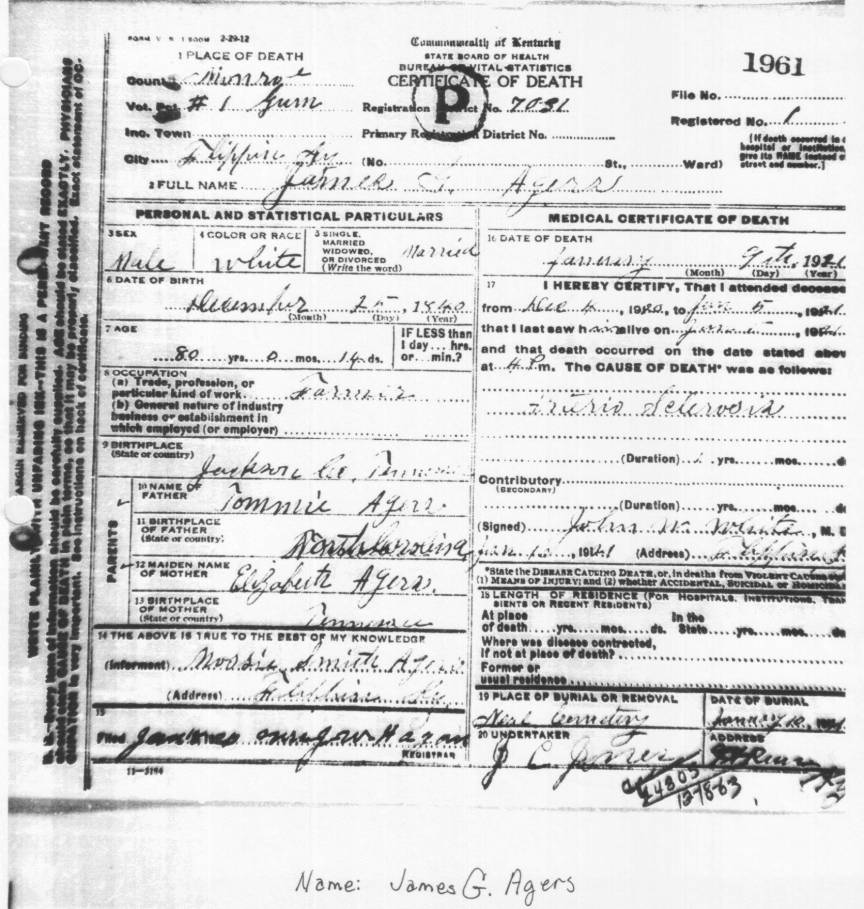 FORM V. S. 1 2-29-12
Commonwealth of Kentucky
STATE BOARD OF HEALTH
BUREAU OF VITAL STATISTICS
CERTIFICATE OF DEATH
1961
P
1 PLACE OF DEATH
County Monroe
Vot. Pct. # 1 Gum
Registration District No. 7031
File No.
Registered No. 1
Inc. Town
Primary Registration District No.
[If death occurred in a
hospital or institution,
give its NAME instead of
street and number.]
City Flippin Ky (No. St., Ward)
2 FULL NAME James G. Agers
PERSONAL AND STATISTICAL PARTICULARS
3 SEX
Male
4 COLOR OR RACE
White
5 SINGLE,
MARRIED
WIDOWED,
OR DIVORCED
(Write the word)
Married
6 DATE OF BIRTH
December 25, 1840
(Month) (Day) (Year)
7 AGE
80 yrs. 0 mos. 14 ds.
IF LESS than
1 day... hrs.
or... min.?
8 OCCUPATION
(a) Trade, profession, or
particular kind of work. Farmer
(b) General nature of industry
business or establishment in
which employed (or employer)
9 BIRTHPLACE
(State or country)
Jackson Co. Tennessee
PARENTS
10 NAME OF
FATHER
Tommie Agers
11 BIRTHPLACE
OF FATHER
(State or country)
North Carolina
12 MAIDEN NAME
OF MOTHER
Elizabeth Agers.
13 BIRTHPLACE
OF MOTHER
(State or country)
Tennessee
14 THE ABOVE IS TRUE TO THE BEST OF MY KNOWLEDGE
(Informant) Smith Agers
(Address) Flippin Ky
15
Filed
REGISTRAR
11-5194
MEDICAL CERTIFICATE OF DEATH
16 DATE OF DEATH
January 9th, 1921
(Month) (Day) (Year)
17
I HEREBY CERTIFY, That I attended deceased
from Dec 4, 1920, to Jan 5, 1921
that I last saw him alive on Jan 5, 1921
and that death occurred on the date stated above
at 4 P.m. The CAUSE OF DEATH* was as follows:
Sclerosis
(Duration) yrs. mos.
Contributory
(SECONDARY)
(Duration) yrs. mos.
(Signed) John W. White, M. D
Jan, 1921 (Address) Flippin K
*State the DISEASE CAUSING DEATH, or, in deaths from VIOLENT CAUSES
(1) MEANS OF INJURY; and (2) whether ACCIDENTAL, SUICIDAL or HOMICIDAL
18 LENGTH OF RESIDENCE (FOR HOSPITALS, INSTITUTIONS, TRAN
SIENTS OR RECENT RESIDENTS)
At place
of death yrs. mos. ds.
In the
State yrs. mos.
Where was disease contracted,
if not at place of death?
Former or
usual residence
19 PLACE OF BURIAL OR REMOVAL
Neal Cemetery
DATE OF BURIAL
January 10, 1921
20 UNDERTAKER
J C Jones
ADDRESS
24803
12-18-63
MARGIN RESERVED FOR BINDING
WRITE PLAINLY WITH UNFADING INK—THIS IS A PERMANENT RECORD
N. B.—Every item of information should be carefully supplied. AGE should be stated EXACTLY. PHYSICIANS
should state CAUSE OF DEATH in plain terms, so that it may be properly classified. Exact statement of OC-
CUPATION is very important. See instructions on back of certificate.
Name: James G. Agers